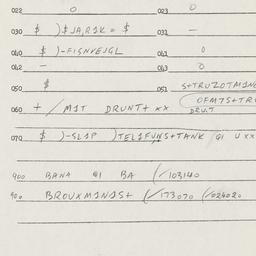 022 0 023 0
030 $ )$JA,R1K = $ 032 —
040 $ )-FISNVEJGL 041 0
042 — 043 0
050 $ 051 S+TRUZOTM1N
OFM7S+TR
060 + / M1T DRUNT+ XX DRU.T
070 $ )-SL1P )TEL1FUNS+TANK G1 U XX
900 BANA G1 BA (/103140
900 BROUXM1N1S+ (/173070 (/024020